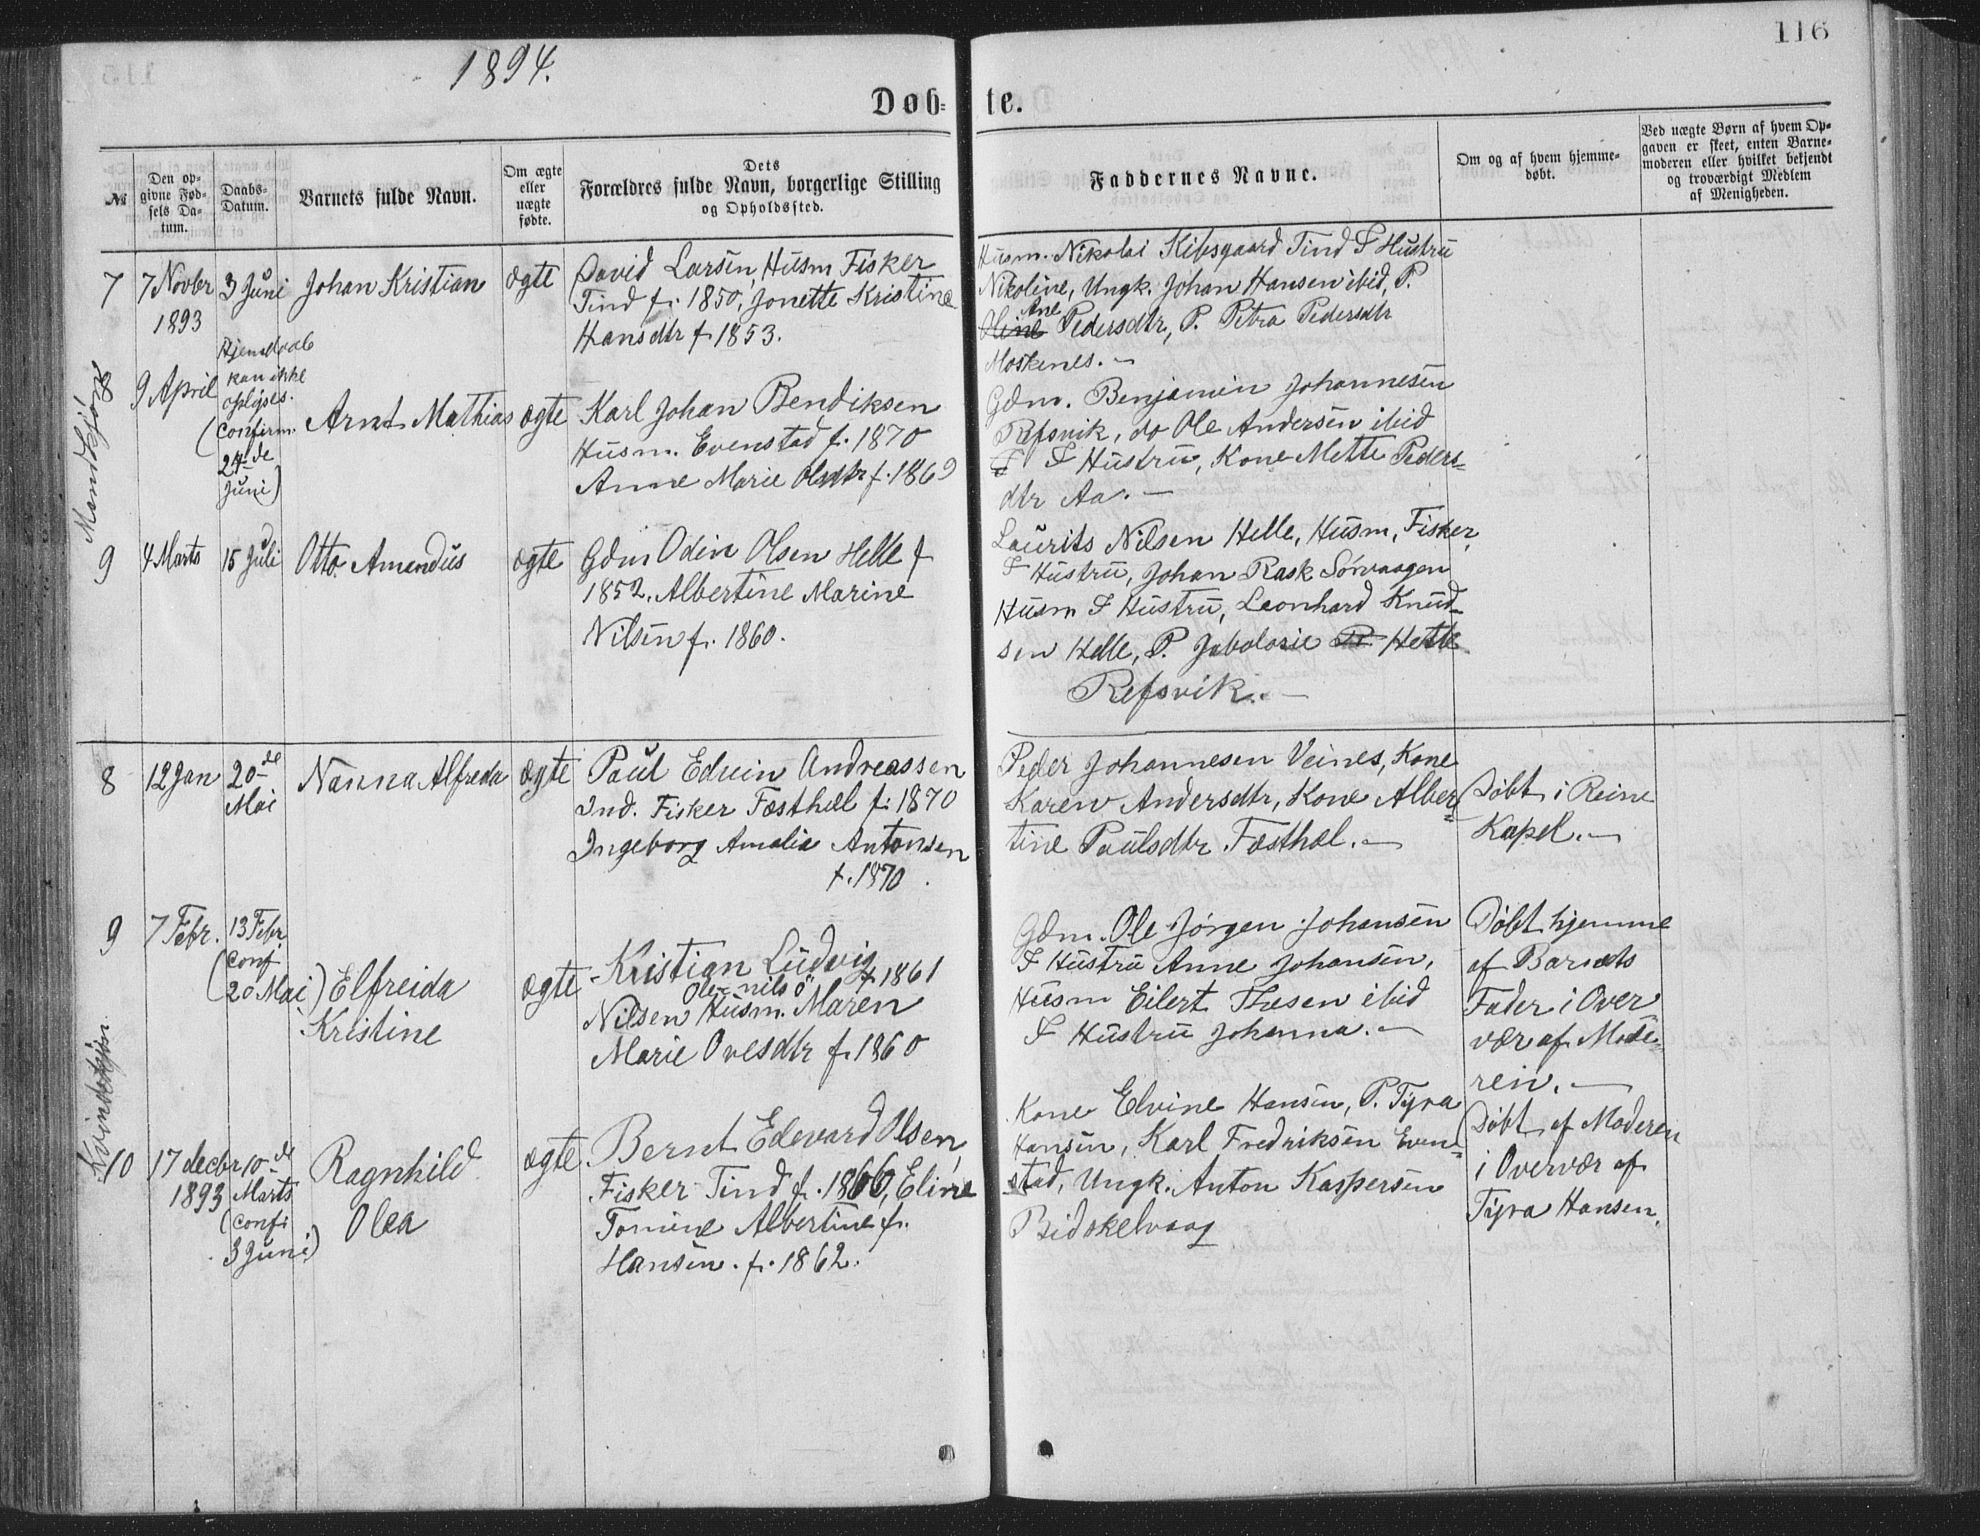 1894.
116
Døb=te.
№
Den op=
givne Fød=
sels Da=
tum.
Daabs=
Datum.
Barnets fulde Navn.
Om ægte
eller
uægte
fødte.
Dets
Forældres fulde Navn, borgerlige Stilling
og Opholdssted.
Faddernes Navne.
Om og af hvem hjemme=
døbt.
Ved uægte Børn af hvem Op=
gaven er skeet, enten Barne=
moderen eller hvilket bekjendt
og troværdigt Medlem
af Menigheden.
Mandkjøn
7
7 Novbr
1893
3 Juni
Johan Kristian
ægte
David Larsen, Husm Fisker
Tind f. 1850, Jonette Kristine
Hansdtr f 1853.
Husm. Nikolai Kibsgaard Tind & Hustru
Nikoline, Ungk. Johan Hansen ibid, P.
Ane
Oline Pedersdtr, P. Petra Pedersdtr
Moskenes. –
8
9 April
Hjemdaab
kan ikke
oplyses.
(Confirm.
24de
Juni)
Arnt Mathias
ægte
Karl Johan Bendiksen
Husm. Evenstad f. 1870
Anne Marie Olsdtr f. 1869
Gdm. Benjamin Johannesen
Refsvik, do Ole Andersen ibid
& Hustru, Kone Mette Peders=
dtr Aa. –
9
4 Marts
15 Juli
Otto Amandus
ægte
Gdm Odin Olsen Helle f
1852. Albertine Marine
Nilsen f. 1860.
Laurits Nilsen Helle, Husm, Fisker,
& Hustru, Johan Rask Sörvaagen
Husm & Hustru, Leonhard Knud=
sen Helle, P. Helle
Refsvik. –
8
12 Jan
20de
Mai
Nanna Alfreda
ægte
Paul Edvin Andreassen
Ind. Fisker Festhæl f. 1870
Ingeborg Amalie Antonsen
f. 1870.
Peder Johannesen Veines, Kone
Karen Andersdtr, Kone Alber=
tine Paulsdtr. Festhæl. –
Døbt i Reine
Kapel. –
Kvindekjøn
9
7 Febr.
13 Febr
(conf
20 Mai)
Elfreida
Kristine
ægte
Kristian Ludvig
f 1861
Olenilsö
Nilsen Husm. Maren
Marie Ovesdtr f. 1860
Gdm. Ole Jørgen Johansen
& Hustru Anne Johansen,
Husm Eilert Thesen ibid
& Hustru Johanna. –
Døbt hjemme
af Barnets
Fader i Over
vær af Mode=
ren. –
10
17 decbr
1893
10de
Marts
(confi
3 Juni)
Ragnhild
Olea
ægte
Bernt Edevard Olsen,
Fisker Tind f. 1866, Eline
Tomine Albertine f.
Hansen. f. 1862.
Kone Elvine Hansen, P. Tyra
Hansen, Karl Fredriksen Even=
stad, Ungk. Anton Kaspersen
Bidskelvaag
Døbt af Moderen
i Overvær af
Tyra Hansen.